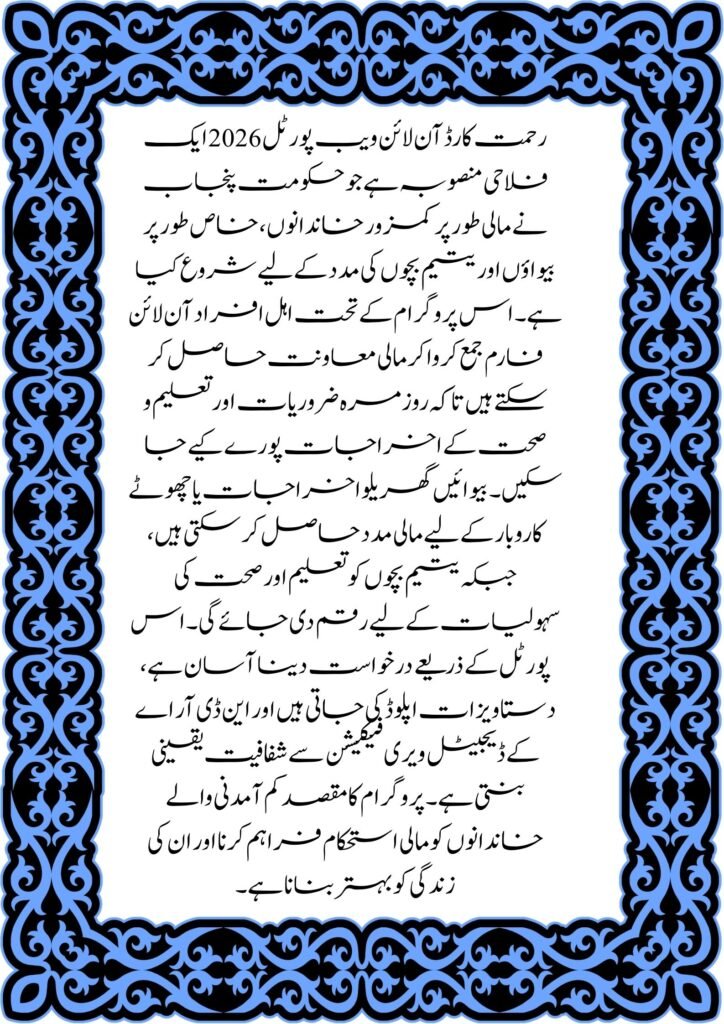 رحمت کارڈ آن لائن ویب پورٹل 2026 ایک
فلاحی منصوبہ ہے جو حکومت پنجاب
نے مالی طور پر کمزور خاندانوں، خاص طور پر
بیواؤں اور یتیم بچوں کی مدد کے لیے شروع کیا
ہے۔ اس پروگرام کے تحت اہل افراد آن لائن
فارم جمع کروا کر مالی معاونت حاصل کر
سکتے ہیں تاکہ روزمرہ ضروریات اور تعلیم و
صحت کے اخراجات پورے کیے جا
سکیں۔ بیوائیں گھریلو اخراجات یا چھوٹے
کاروبار کے لیے مالی مدد حاصل کر سکتی ہیں،
جبکہ یتیم بچوں کو تعلیم اور صحت کی
سہولیات کے لیے رقم دی جائے گی۔ اس
پورٹل کے ذریعے درخواست دینا آسان ہے،
دستاویزات اپلوڈ کی جاتی ہیں اور این ڈی آر اے
کے ڈیجیٹل ویری فیکیشن سے شفافیت یقینی
بنتی ہے۔ پروگرام کا مقصد کم آمدنی والے
خاندانوں کو مالی استحکام فراہم کرنا اور ان کی
زندگی کو بہتر بنانا ہے۔